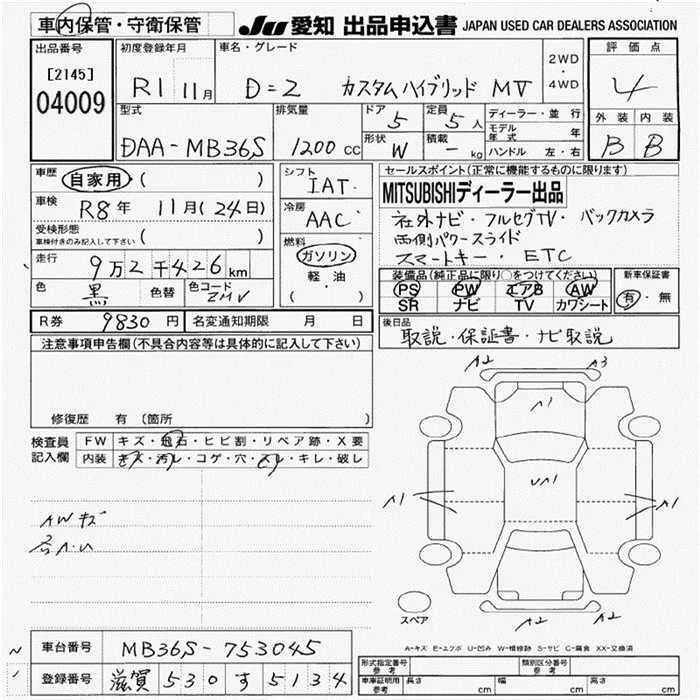 車内保管・守衛保管
JU 愛知 出品申込書 JAPAN USED CAR DEALERS ASSOCIATION
出品番号
[2145]
04009
初度登録年月
R1 11月
車名・グレード
D=2 カスタムハイブリッド MV
2WD
・
4WD
評価点
4
外装 内装
B B
型式
DAA-MB36S
排気量
1200 cc
ドア
5
定員
5人
形状
W
積載
- kg
ディーラー・並行
モデル年式 年
ハンドル 左・右
車歴
自家用 ( )
車検
R8年 11月(24日)
受検形態
車検付きのみ記入して下さい ( )
走行
9万2千426km
色
黒
色替
色コード
ZMV
シフト
IAT
冷房
AAC
燃料
ガソリン
軽・油
( )
セールスポイント(正常に機能するものに限ります)
MITSUBISHIディーラー出品
社外ナビ・フルセグTV・バックカメラ
両側パワースライド
スマートキー・ETC
装備品(純正品に限り○をつけてください)
PS PW エアB AW
SR ナビ TV カワシート
新車保証書
有・無
R券 9830円 名変通知期限 月 日
後日品
取説・保証書・ナビ取説
注意事項申告欄(不具合内容等は具体的に記入して下さい)
修復歴 有 〔箇所 〕
検査員
記入欄
FW キズ・飛石・ヒビ割・リペア跡・X要
内装 キズ・汚レ・コゲ・穴・スレ・キレ・破レ
AWキズ
A2 A3
A1
UA1
A1 A1
A2 A2
スペア
A-キズ E-エクボ U-凹み W-補修跡 S-サビ C-腐食 XX-交換済
車台番号 MB36S-753045
登録番号 滋賀530す5134
形式指定番号
参考
類別区分番号
参考
車庫証明用
参考
長さ cm 幅 cm 高さ cm